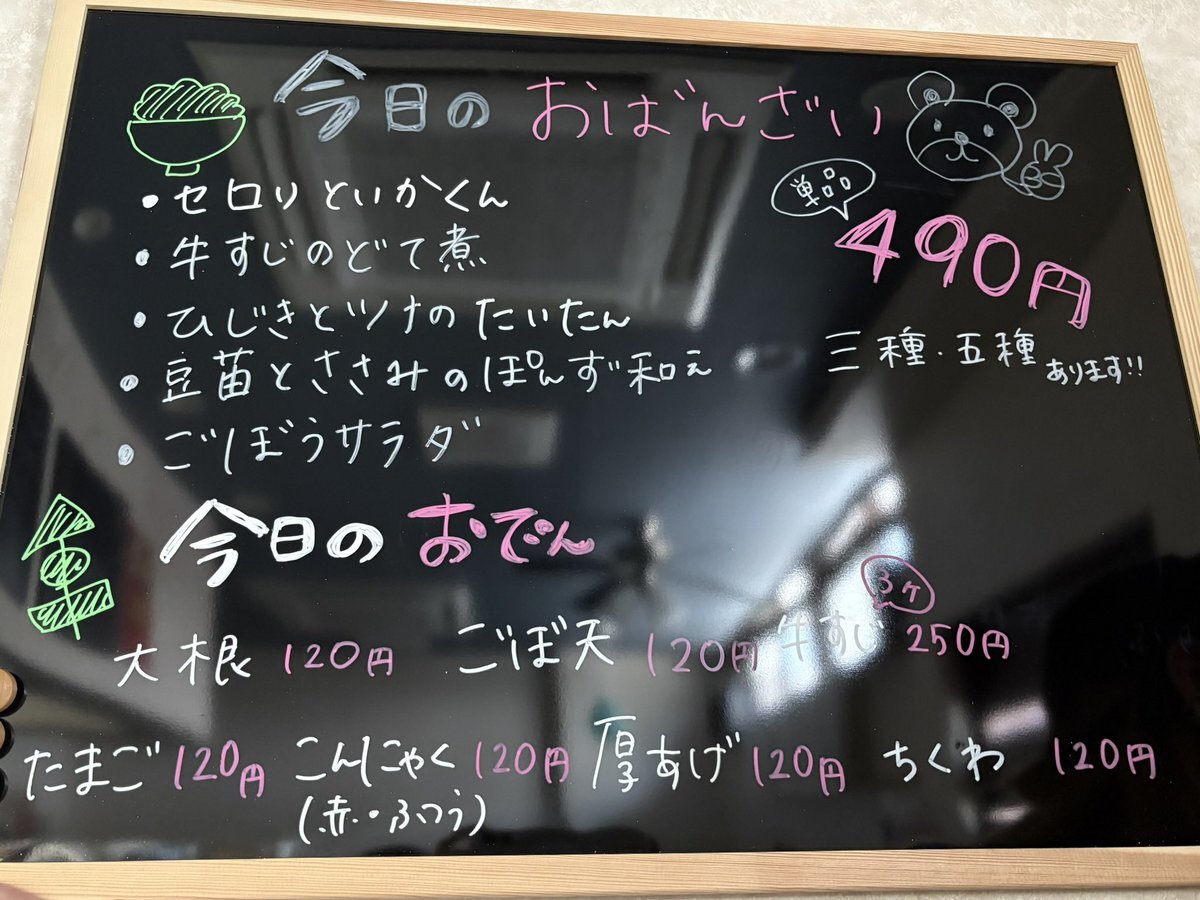 今日のおばんざい
・セロリといかくん
・牛すじのどて煮
・ひじきとツナのたいたん
・豆苗とささみのぽんず和え
・ごぼうサラダ
単品
490円
三種・五種あります!!
今日のおでん
大根 120円 ごぼ天 120円 牛すじ 3ケ 250円
たまご 120円 こんにゃく 120円 厚あげ 120円 ちくわ 120円
(赤・ふつう)